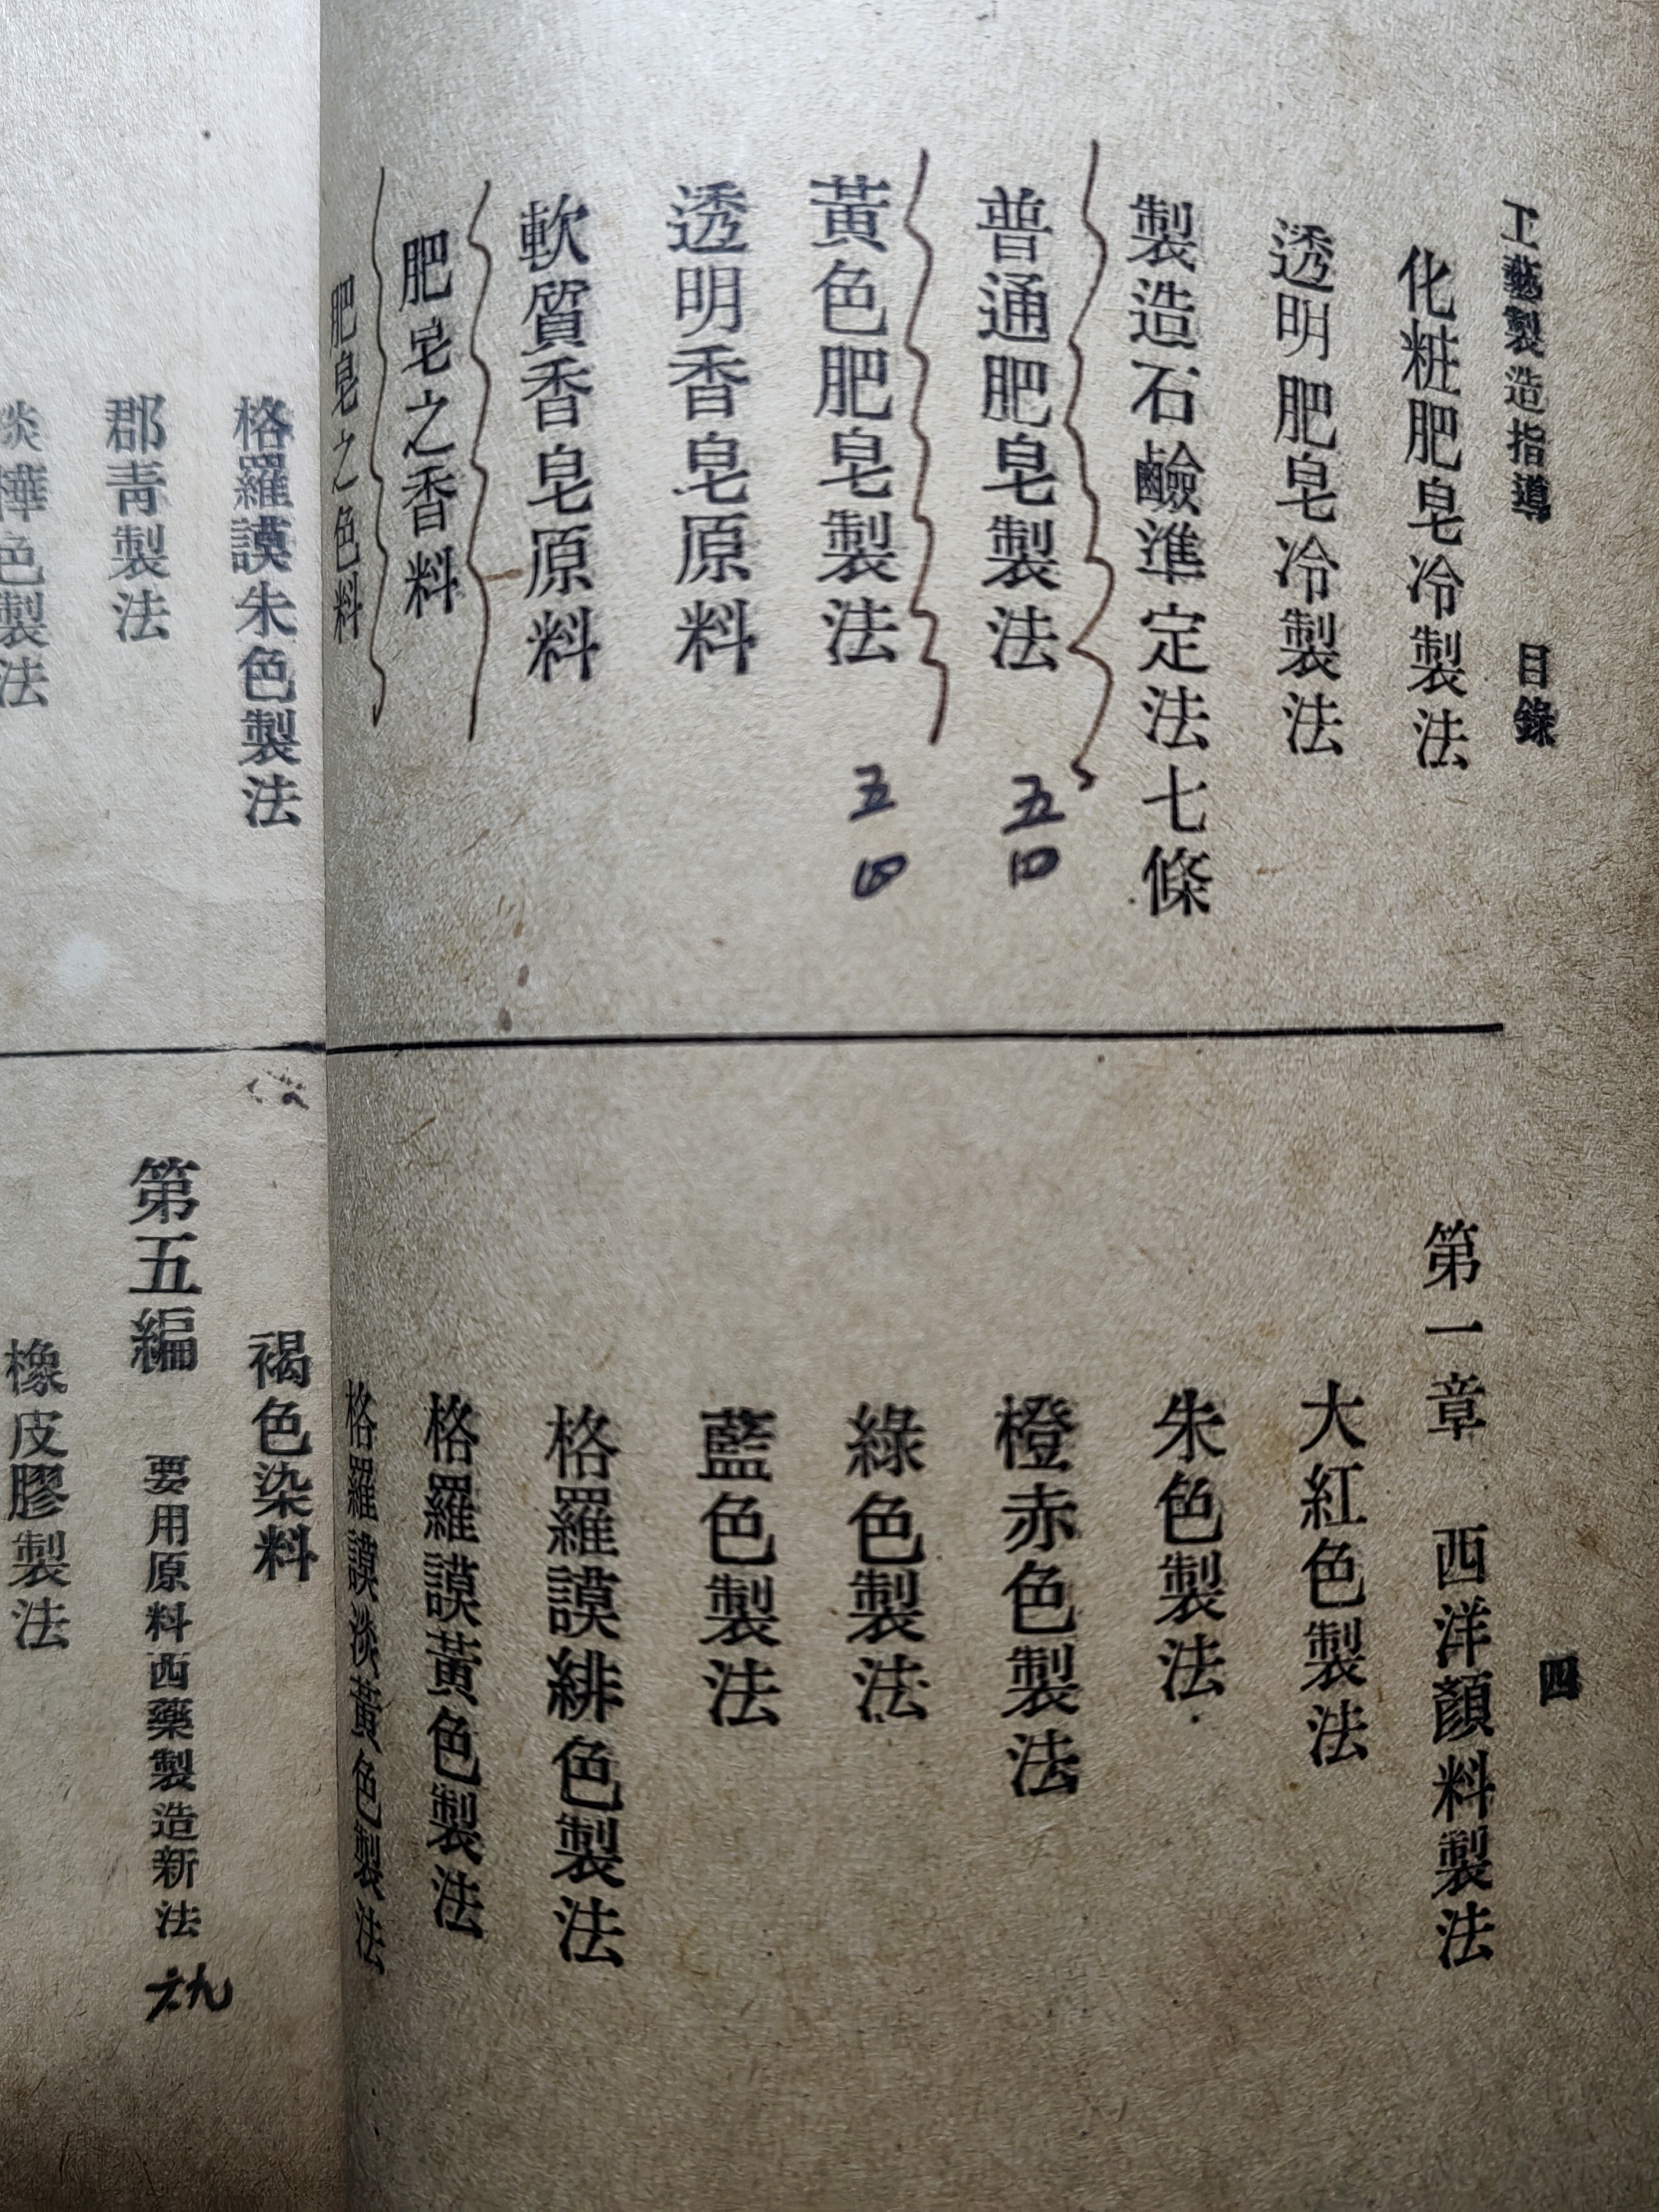 工藝製造指導 目錄 四
化粧肥皂冷製法
透明肥皂冷製法
製造石鹼準定法七條
普通肥皂製法 五四
黃色肥皂製法 五四
透明香皂原料
軟質香皂原料
肥皂之香料
肥皂之色料
第一章 西洋顏料製法
大紅色製法
朱色製法
橙赤色製法
綠色製法
藍色製法
格羅謨緋色製法
格羅謨黃色製法
格羅謨淡黃色製法
格羅謨朱色製法
郡青製法
淡樺色製法
褐色染料
第五編 要用原料西藥製造新法 六九
橡皮膠製法